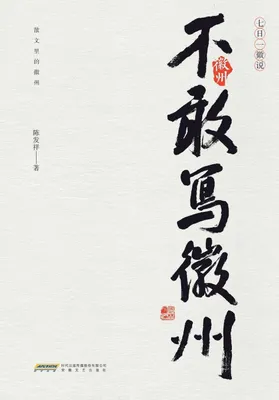 七日一徽说
不敢写徽州
徽州
散文里的徽州
陈发祥——著
时代出版传媒股份有限公司
安徽文艺出版社